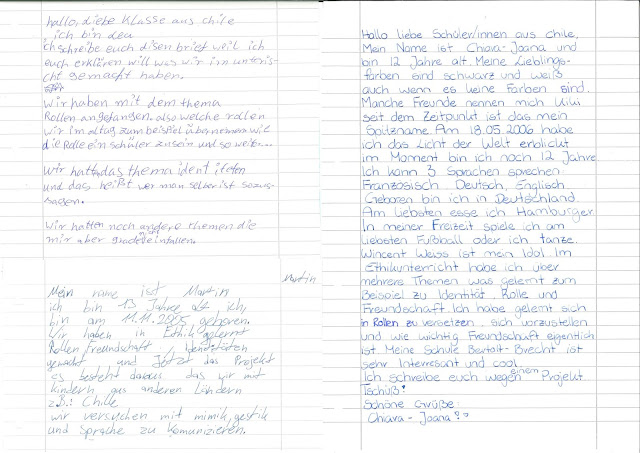 hallo, diebe Klasse aus chile
ich bin dea
ich schreibe euch disen brief weil ich
euch erklären will was wir im unteris-
cht gemacht haben.
Wir haben mit dem thema
Rollen angefangen. also welche rollen
wir im altag zum beispiel übernemen wie
die Rolle ein schüler zu sein und so weiter...
wir hatten das thema identiteten
und das heißt wer man selber ist sozus-
sagen.
wir hatten noch andere themen die
mir aber gerade nicht einfallen.
Martin
Mein name ist Martin
ich bin 13 Jahre alt ich
bin am 11.11.2005 geboren.
Wir haben in Ethik gelernt
Rollen freundschaft, Identitäten
gemacht und Jetzt das Projekt
es besteht daraus das wir mit
kindern aus anderen Ländern
z.B.: Chille
wir versuchen mit mimik, gestik
und Sprache zu Komunizieren.
Hallo liebe Schüler/innen aus chile,
Mein Name ist Chiara-Joana und
bin 12 Jahre alt. Meine Lieblings-
farben sind schwarz und weiß
auch wenn es keine Farben sind.
Manche Freunde nennen mich Kiki
seit dem Zeitpunkt ist das mein
Spitzname. Am 18.05.2006 habe
ich das Licht der Welt erblickt
im Moment bin ich noch 12 Jahre
Ich kann 3 Sprachen sprechen:
Französisch, Deutsch, Englisch
Geboren bin ich in Deutschland.
Am liebsten esse ich Hamburger.
In meiner Freizeit spiele ich am
liebsten Fußball oder ich tanze.
Wincent Weiss ist mein Idol. Im
Ethikunterricht habe ich über
mehrere Themen was gelernt zum
Beispiel zu Identität, Rolle und
Freundschaft. Ich habe gelernt sich
in Rollen zu versetzen, sich vorzustellen
und wie wichtig Freundschaft eigentlich
ist. Meine Schule Bertolt-Brecht ist
sehr Interresant und cool.
Ich schreibe euch wegen einem Projekt
Tschüß!
Schöne Grüße:
Chiara-Joana